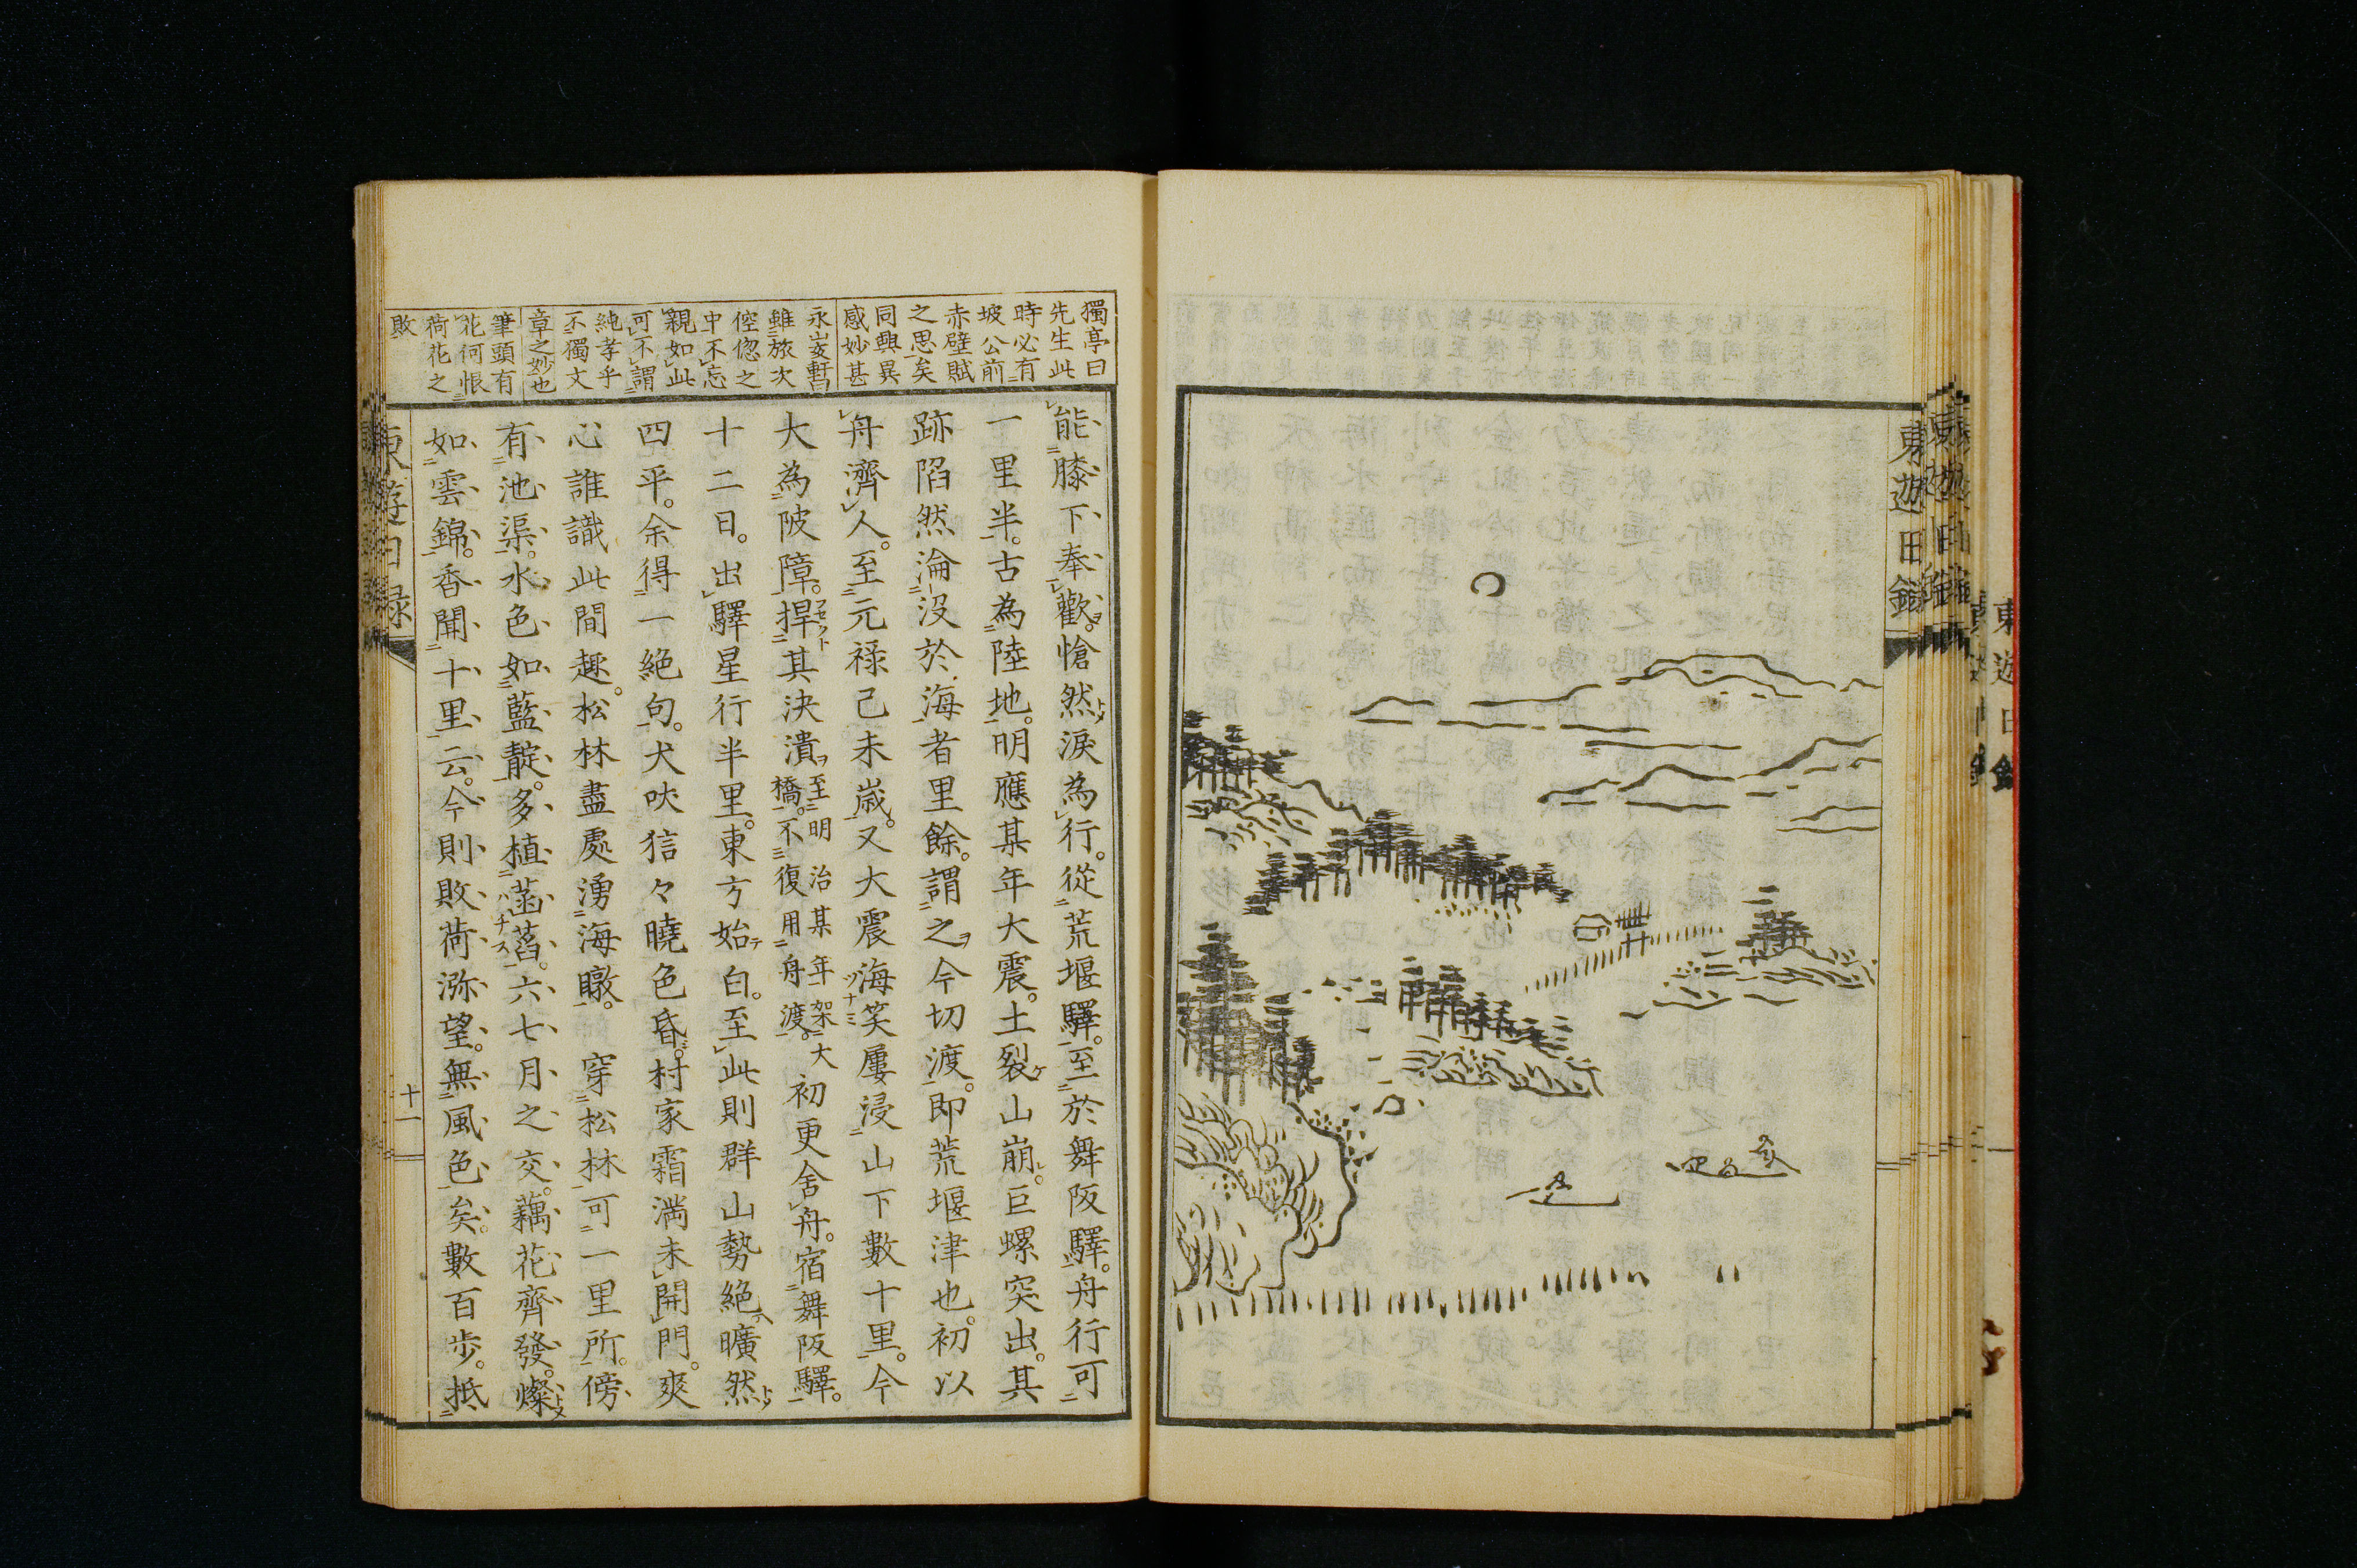 東遊日錄
獨亭曰
先生此
時必有
坡公前
赤壁賦
之思矣
同興異
感妙甚
永岌暫曰
雖旅次
倥偬之
中不忘
親如此
可不謂
純孝乎
不獨文
章之妙也
筆頭有
花何恨
荷花之
敗
能膝下奉歡。愴然淚為行。從荒堰驛。至於舞阪驛。舟行可
一里半。古為陸地。明應某年大震。土裂山崩。巨螺突出。其
跡陷然淪沒於海者里餘。謂之今切渡。即荒堰津也。初以
舟濟人。至元祿己未歲。又大震海笑屢浸山下數十里。今
大為陂障。捍其決潰至明治某年架大橋。不復用舟渡。初更舍舟。宿舞阪驛。
十二日。出驛星行半里。東方始白。至此則群山勢絕曠然
四平。余得一絕句。犬吠狺々曉色昏。村家霜滿未開門。爽
心誰識此間趣。松林盡處湧海暾。 穿松林可一里所。傍
有池渠。水色如藍靛。多植菡萏。六七月之交。藕花齊發。燦
如雲錦。香聞十里云。今則敗荷渺望。無風色矣。數百步。抵
東遊日錄
十一